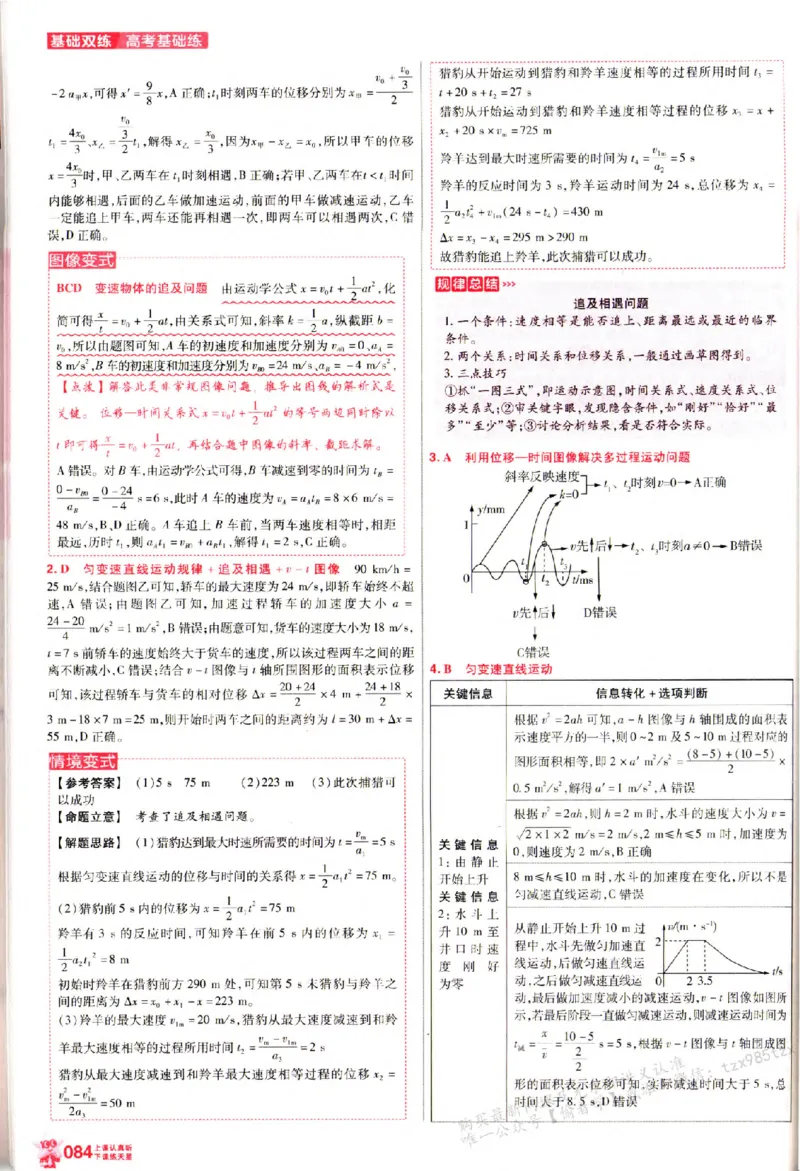 基础双练 高考基础练
-2 a甲x,可得 x′ = 9/8 x,A 正确;t₁时刻两车的位移分别为 x甲 = (v₀ + v₀/3)/2
t₁ = 4x₀/3、x乙 = (v₀/3)/2 t₁,解得 x乙 = x₀/3,因为x甲 - x乙 = x₀,所以甲车的位移
x = 4x₀/3 时,甲、乙两车在 t₁时刻相遇,B 正确;若甲、乙两车在t < t₁时间
内能够相遇,后面的乙车做加速运动,前面的甲车做减速运动,乙车
一定能追上甲车,两车还能再相遇一次,即两车可以相遇两次,C 错
误,D 正确。
图像变式
BCD 变速物体的追及问题 由运动学公式 x = v₀t + 1/2 at²,化
简可得 x/t = v₀ + 1/2 at,由关系式可知,斜率 k = 1/2 a,纵截距 b =
v₀,所以由题图可知,A 车的初速度和加速度分别为 vA0 = 0、aA =
8 m/s²,B 车的初速度和加速度分别为 vB0 = 24 m/s、aB = -4 m/s²,
【点拨】解答此类非常规图像问题,推导出图线的解析式是
关键。位移—时间关系式 x = v₀t + 1/2 at² 的等号两边同时除以
t 即可得 x/t = v₀ + 1/2 at,再结合题中图像的斜率、截距求解。
A 错误。对 B 车,由运动学公式可得,B 车减速到零的时间为 tB =
(0 - vB0)/aB = (0 - 24)/(-4) s = 6 s,此时 A 车的速度为 vA = aAtB = 8 × 6 m/s =
48 m/s,B、D 正确。A 车追上 B 车前,当两车速度相等时,相距
最远,历时 t₁,则 aAt₁ = vB0 + aBt₁,解得 t₁ = 2 s,C 正确。
2. D 匀变速直线运动规律 + 追及相遇 + v - t 图像 90 km/h =
25 m/s,结合题图乙可知,轿车的最大速度为 24 m/s,即轿车始终不超
速,A 错误;由题图乙可知,加速过程轿车的加速度大小 a =
(24 - 20)/4 m/s² = 1 m/s²,B 错误;由题意可知,货车的速度大小为 18 m/s,
t = 7 s 前轿车的速度始终大于货车的速度,所以该过程两车之间的距
离不断减小,C 错误;结合 v - t 图像与 t 轴所围图形的面积表示位移
可知,该过程轿车与货车的相对位移 Δx = (20 + 24)/2 × 4 m + (24 + 18)/2 ×
3 m - 18 × 7 m = 25 m,则开始时两车之间的距离约为 l = 30 m + Δx =
55 m,D 正确。
情境变式
【参考答案】 (1)5 s 75 m (2)223 m (3)此次捕猎可
以成功
【命题立意】 考查了追及相遇问题。
【解题思路】 (1)猎豹达到最大时速所需要的时间为 t = vm/a₁ = 5 s
根据匀变速直线运动的位移与时间的关系得 x = 1/2 a₁t² = 75 m。
(2)猎豹前 5 s 内的位移为 x = 1/2 a₁t² = 75 m
羚羊有 3 s 的反应时间,可知羚羊在前 5 s 内的位移为 x₁ =
1/2 a₂t₁² = 8 m
初始时羚羊在猎豹前方 290 m 处,可知第 5 s 末猎豹与羚羊之
间的距离为 Δx = x₀ + x₁ - x = 223 m。
(3)羚羊的最大速度 v1m = 20 m/s,猎豹从最大速度减速到和羚
羊最大速度相等的过程所用时间 t₂ = (vm - v1m)/a₃ = 2 s
猎豹从最大速度减速到和羚羊最大速度相等过程的位移 x₂ =
(vm² - v1m²)/2a₃ = 50 m
084 上课认真听
下课练天星
猎豹从开始运动到猎豹和羚羊速度相等的过程所用时间 t₃ =
t + 20 s + t₂ = 27 s
猎豹从开始运动到猎豹和羚羊速度相等过程的位移 x₃ = x +
x₂ + 20 s × vm = 725 m
羚羊达到最大时速所需要的时间为 t₄ = v1m/a₂ = 5 s
羚羊的反应时间为 3 s,羚羊运动时间为 24 s,总位移为 x₄ =
1/2 a₂t₄² + v1m(24 s - t₄) = 430 m
Δx = x₃ - x₄ = 295 m > 290 m
故猎豹能追上羚羊,此次捕猎可以成功。
规律总结 >>>
追及相遇问题
1. 一个条件:速度相等是能否追上、距离最远或最近的临界
条件。
2. 两个关系:时间关系和位移关系,一般通过画草图得到。
3. 三点技巧
①抓“一图三式”,即运动示意图,时间关系式、速度关系式、位
移关系式;②审关键字眼,发现隐含条件,如“刚好”“恰好”“最
多”“至少”等;③讨论分析结果,看是否符合实际。
3. A 利用位移—时间图像解决多过程运动问题
斜率反映速度 → t₁、t₂时刻v=0→A正确
k=0
y/mm
1
v先↑后↓→t₂、t₃时刻a≠0→B错误
0 t₁ t₂ t₃ t/ms
v先↑后↓ D错误
C错误
4. B 匀变速直线运动
关键信息 信息转化 + 选项判断
关键信息
1:由静止
开始上升
关键信息
2:水斗上
升 10 m 至
井口时速
度刚好
为零
根据 v² = 2ah 可知,a - h 图像与 h 轴围成的面积表
示速度平方的一半,则 0 ~ 2 m 及 5 ~ 10 m 过程对应的
图形面积相等,即 2 × a′ m²/s² = ((8 - 5) + (10 - 5))/2 ×
0.5 m²/s²,解得 a′ = 1 m/s²,A 错误
根据 v² = 2ah,则 h = 2 m 时,水斗的速度大小为 v =
√(2 × 1 × 2) m/s = 2 m/s,2 m ≤ h ≤ 5 m 时,加速度为
0,则速度为 2 m/s,B 正确
8 m ≤ h ≤ 10 m 时,水斗的加速度在变化,所以不是
匀减速直线运动,C 错误
从静止开始上升 10 m 过
程中,水斗先做匀加速直
线运动,后做匀速直线运
动,之后做匀减速直线运
v/(m·s⁻¹)
2
0 2 3.5 t/s
动,最后做加速度减小的减速运动,v - t 图像如图所
示,若最后阶段一直做匀减速运动,则减速运动时间为
t减 = x/v̄ = (10 - 5)/(2/2) s = 5 s,根据 v - t 图像与 t 轴围成图
形的面积表示位移可知,实际减速时间大于 5 s,总
时间大于 8.5 s,D 错误